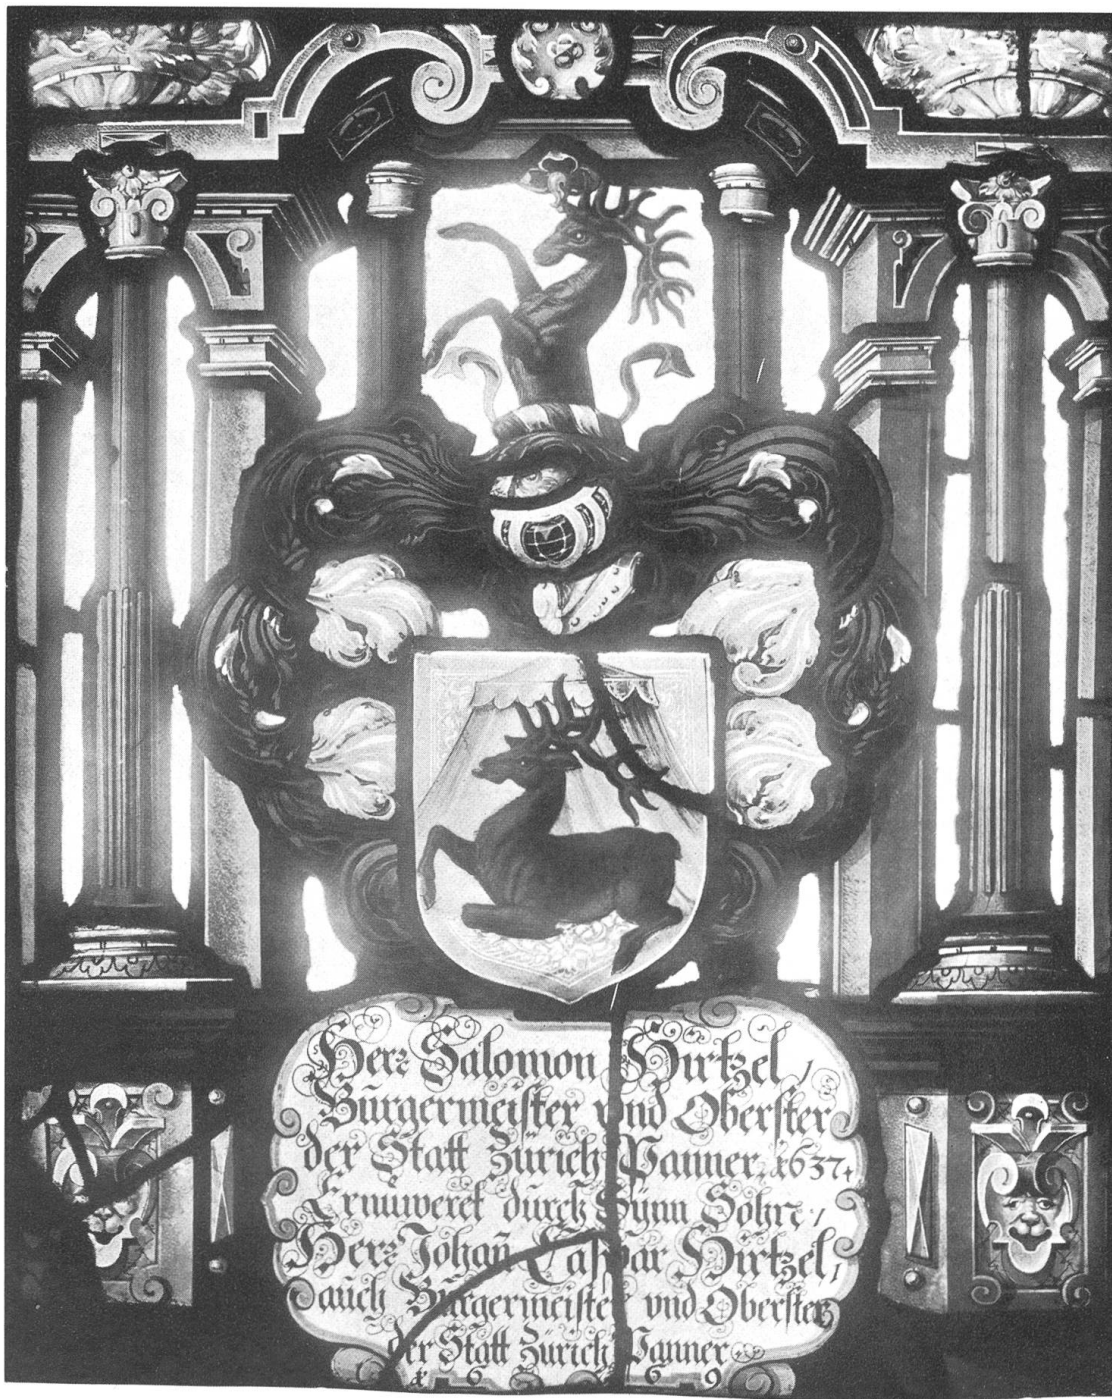 Herr Salomon Hirtzel,
Bürgermeister und Oberster
der Statt Zürich Panner, 1637.
Ernuweret durch Sÿnn Sohn,
Herr Johan̄ Caspar Hirtzel,
auch Bürgermeister vnd Oberster
der Statt Zürich Panner
1669